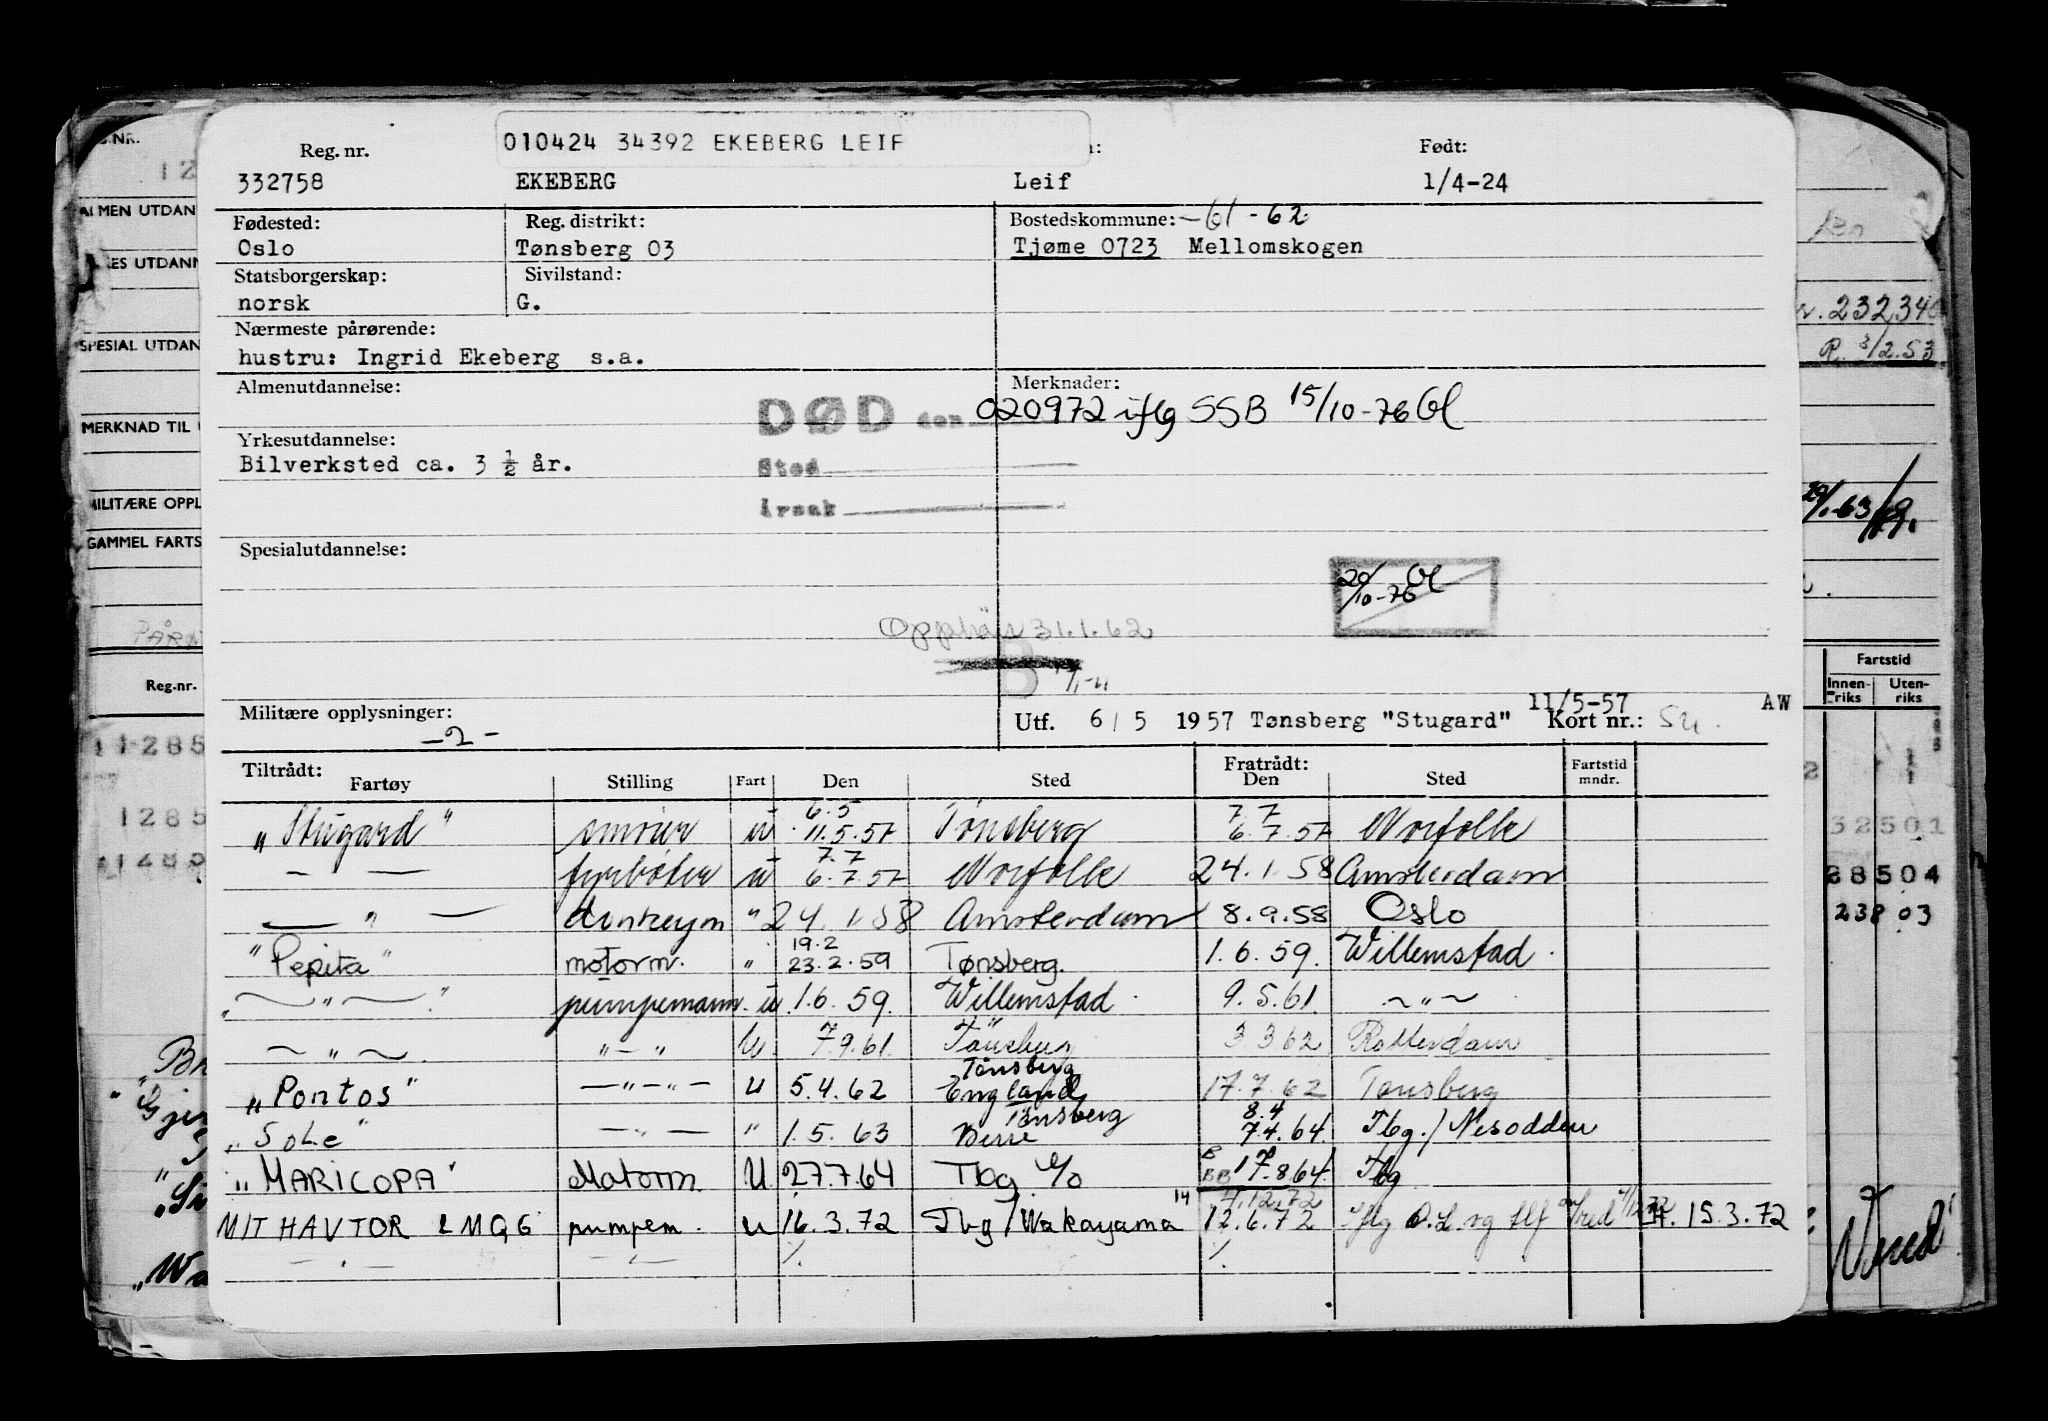 010424 34392 EKEBERG LEIF
Reg. nr. Født:
332758 EKEBERG Leif 1/4-24
Fødested: Reg. distrikt: Bostedskommune: -61-62
Oslo Tønsberg 03 Tjøme 0723 Mellomskogen
Statsborgerskap: Sivilstand:
norsk G.
Nærmeste pårørende:
hustru: Ingrid Ekeberg s.a.
Almenutdannelse: Merknader:
DØD den 020972 iflg SSB 15/10-76 Gl
Yrkesutdannelse:
Bilverksted ca. 3 ½ år.
Sted
Årsak
Spesialutdannelse:
20/10-76 Gl
Opphør 31.1.62
Militære opplysninger: 11/5-57 AW
-2- Utf. 6/5 1957 Tønsberg "Stugard" Kort nr.:
Tiltrådt: Fratrådt:
Fartøy Stilling Fart Den Sted Den Sted Fartstid mndr.
6.5 7.7
"Stugard" smører u 11.5.57 Tønsberg 6.7.57 Norfolk
7.7
— — fyrbøter u 6.7.57 Norfolk 24.1.58 Amsterdam
— " — donkeym " 24.1.58 Amsterdam 8.9.58 Oslo
19.2
"Pepita" motorm. " 23.2.59 Tønsberg. 1.6.59. Willemstad.
— " — pumpemann. u 1.6.59. Willemstad. 9.5.61. ~ " ~
7
~ " ~. " — " U. 7.9.61. 3 3 62 Rotterdam
Tønsberg
"Pontos" — " — " — u 5.4.62 England 17.7.62 Tønsberg
Tønsberg 8.4
"Sole" — " — " 1.5.63 7.4.64. Tbg./Nesodden
"MARICOPA" Motorm. U 27.7.64 Tbg 17.8.64. Tbg
14 4.12.72
MIT HAVTOR LMQG pumpem. u 16.3.72 Tbg/Wakayama 12.6.72 15.3.72
S.NR.
ALMEN UTDAN
ES UTDANN
SPESIAL UTDAN
MERKNAD TIL
MILITÆRE OPPL
GAMMEL FARTS
Reg.-nr.
1285
1285
1285
232340
R. 3/2.53
Fartstid
Innenriks Utenriks
32501
28504
238 03